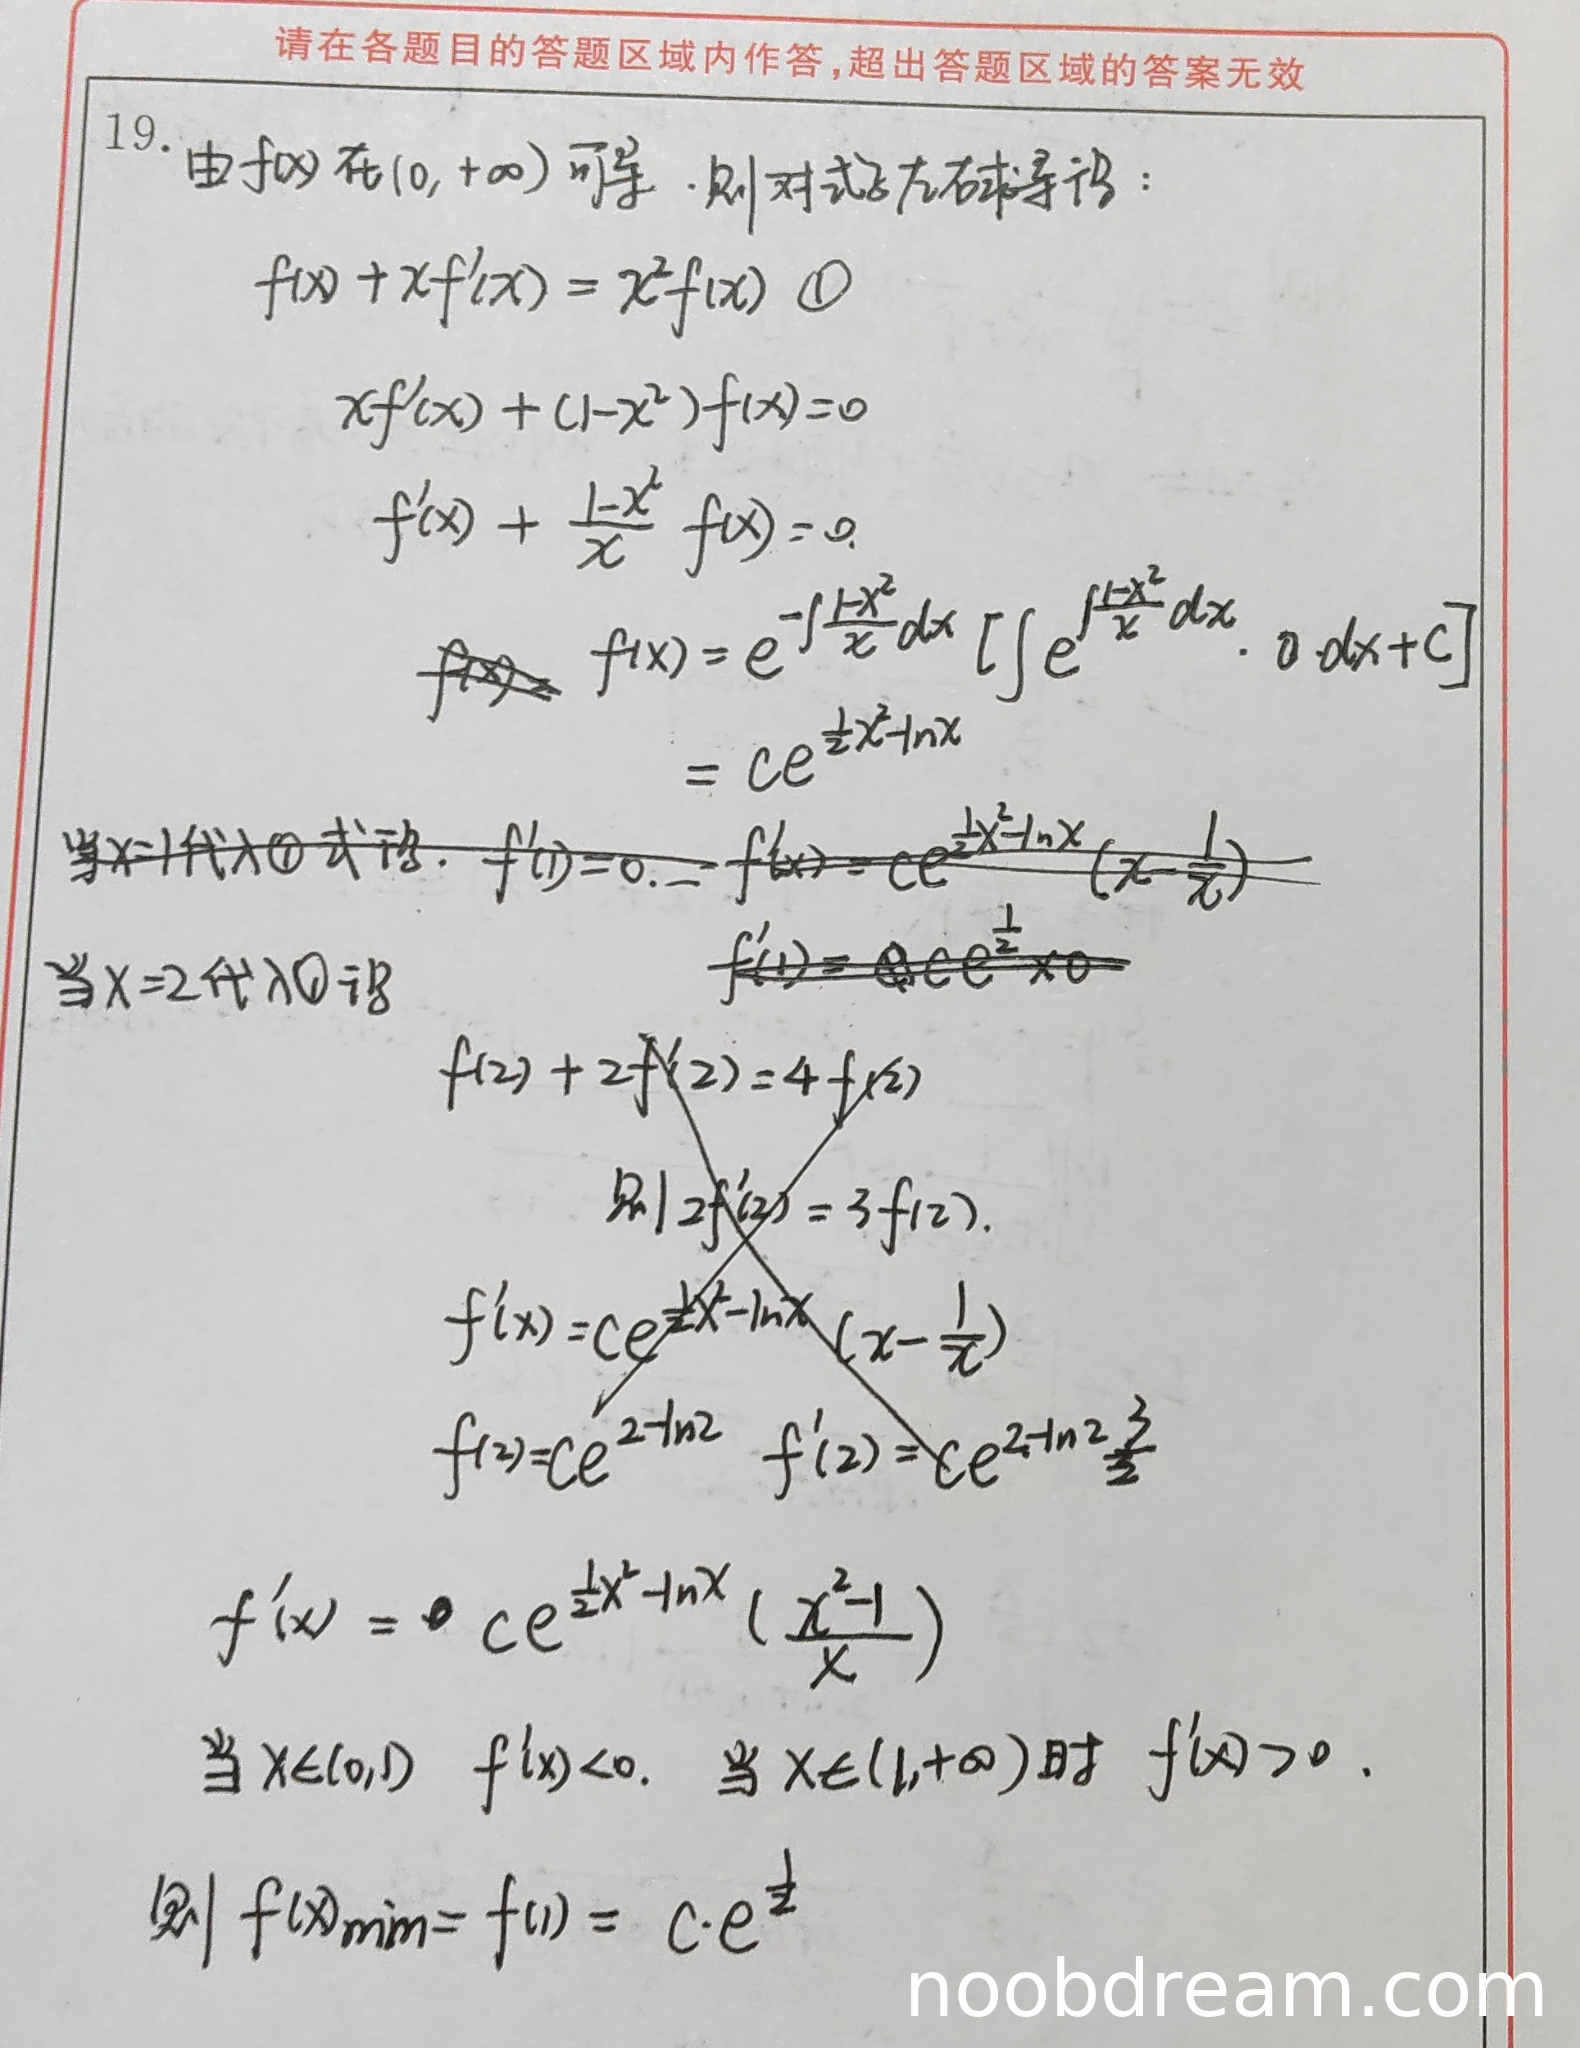 请在各题目的答题区域内作答,超出答题区域的答案无效
19.
由f(x)在(0,+∞)可导.则对式子左右求导得:
f(x)+xf'(x)=x²f(x) ①
xf'(x)+(1-x²)f(x)=0
f'(x)+\frac{1-x²}{x}f(x)=0.
f(x)= f(x)=e^{-∫\frac{1-x²}{x}dx}[∫e^{∫\frac{1-x²}{x}dx}·0·dx+C]
=ce^{\frac{1}{2}x²-lnx}
当x=1代入①式得. f'(1)=0.— f'(x)=ce^{\frac{1}{2}x²-lnx}(x-\frac{1}{x})
f'(1)=ce^{\frac{1}{2}}×0
当x=2代入①得
f(2)+2f'(2)=4f(2)
则2f'(2)=3f(2).
f'(x)=ce^{\frac{1}{2}x²-lnx}(x-\frac{1}{x})
f(2)=ce^{2-ln2} f'(2)=ce^{2-ln2}\frac{3}{2}
f'(x)=ce^{\frac{1}{2}x²-lnx}(\frac{x²-1}{x})
当x∈(0,1) f'(x)<0. 当x∈(1,+∞)时 f'(x)>0.
则f(x)min=f(1)=c·e^{\frac{1}{2}}
noobdream.com